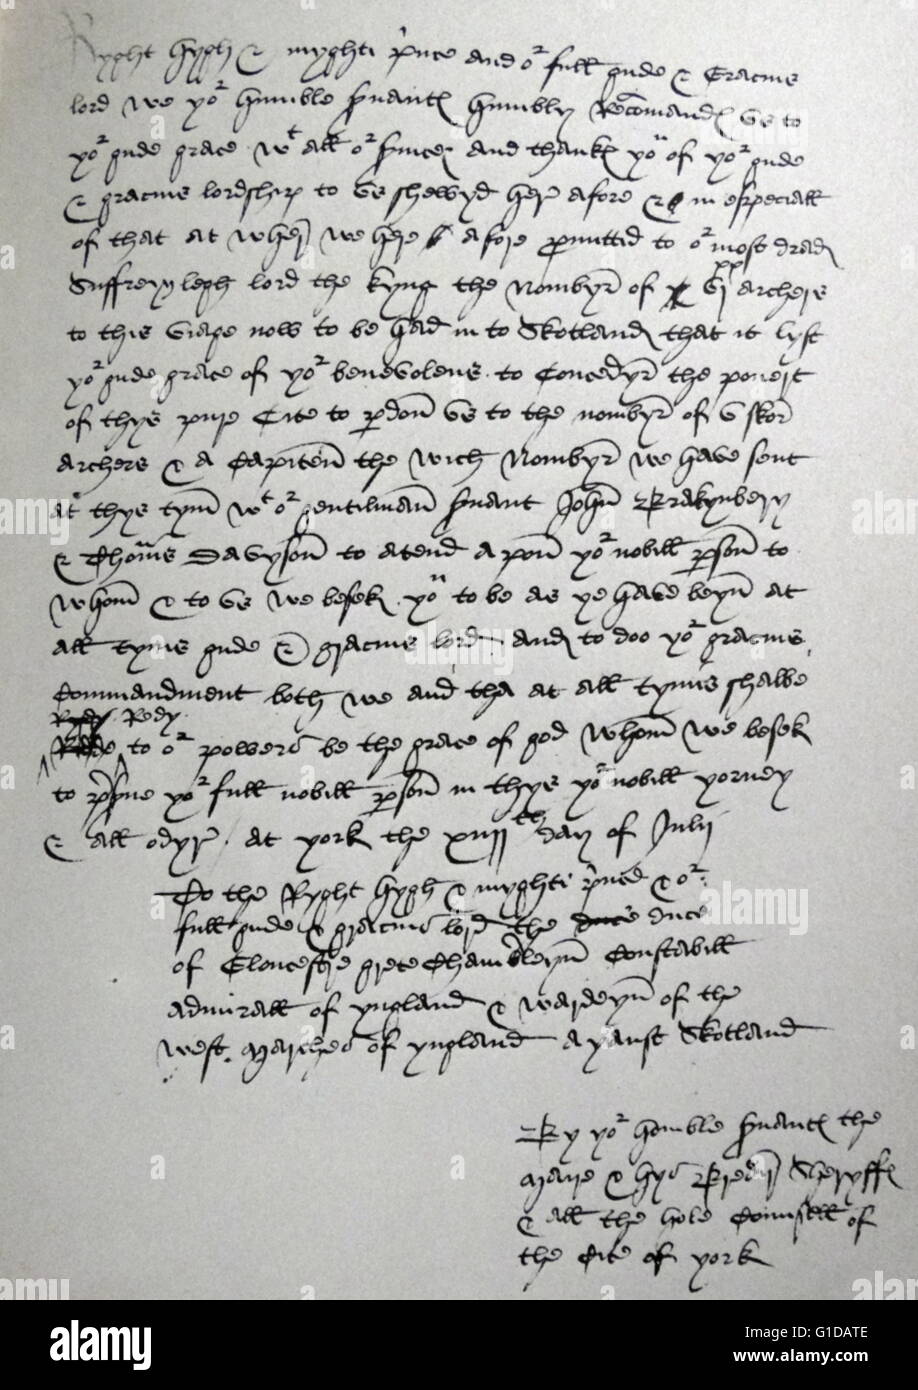 Ryght hygh & myghti prince and or full gude & Gracius
lord we yor humble servants humbly Recomand us to
yor gude grace wt all or service and thanks you of yor gude
& gracius lordship to us shewyd here afore & in especiall
of that at wher we here afore promittid to or most drad
Suffreyn legh lord the kyng the nombyr of vj xx archers
to this viage now to be had in to Skotland that it lyst
yor gude grace of yor benevolens to Concedyr the povert
of thys pure Cite to pardon us to the nombyr of v skor
archers & a Capiten the wich nombyr we have sent
at thys tym wt or gentilman servant John Brakynbery
& Thoms Davyson to atend apon yor nobill person to
whom & to us we besek you to be as ye have beyn at
all tyms gude & gracius lord and to doo yor gracius
Commandment both we and tha at all tymes shalbe
Redy
to or powers be the grace of god whom we besek
to preserve yor full nobill person in thys yor nobill yorney
& all odyr at york the xiiijth day of Julij
To the Ryght hygh & myghti prince & or
full gude & gracius lord the duce duce
of Gloucestre grete Chamberleyn Constabill
admirall of yngland & wardeyn of the
west marches of yngland ayanst Skotland
By yor homble servants the
Maire & hys Breder Sheryffs
& all the hole Counsell of
the Cite of york
alamy
G1DATE
www.alamy.com